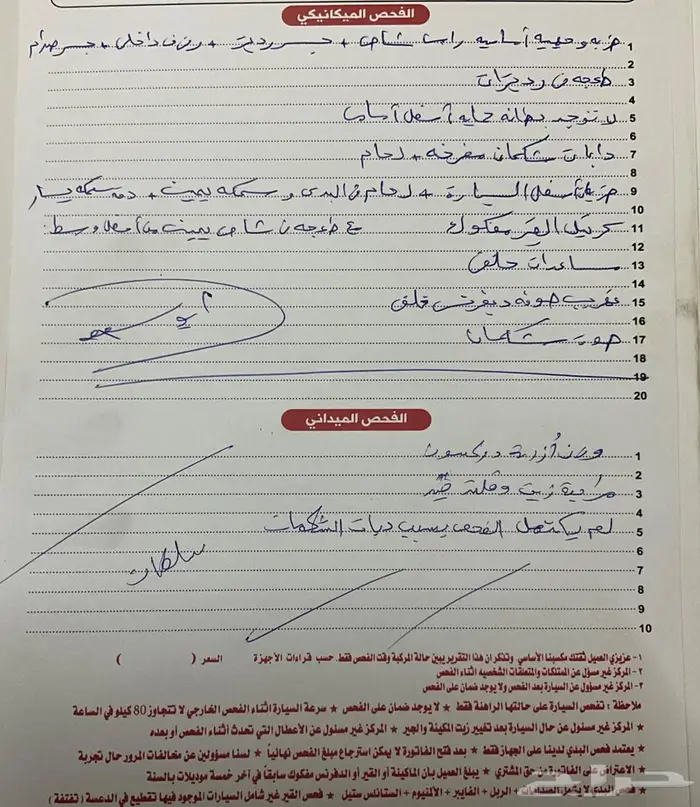 الفحص الميكانيكي
1 ضربة وجهية أساسية راس شاص + جسر رديتر + رفرف داخلي + جسر صدام
2
3 طعجه في رديترات
4
5 لا توجد بطانه حمايه أسفل أمام
6
7 دبات شكمان مفرغه + لحام
8
9 ضربات أسفل السيارة + لحام في البدي وسمكه يمين + دقه سمكه يسار
10
11 كرتيل القير مفكوك مع طعجه في شاص يمين من أسفل وسط
12
13 مساعدات خلف
14
15 تهريب صوفه دفرنس خلف
16
17 صوت شكمان
18
19
20
الفحص الميداني
1 وزن أذرعة دركسون
2
3 مراعية زيت وقلته
4
5 لم يكتمل الفحص بسبب دبات الشكمات
6
7 سلطان
8
9
10
١- عزيزي العميل ثقتك مكسبنا الأساسي وتذكر ان هذا التقرير يبين حالة المركبة وقت الفحص فقط. حسب قراءات الأجهزة السعر ( )
٢- المركز غير مسؤل عن الممتلكات والمتعلقات الشخصيه اثناء الفحص
٣- المركز غير مسؤول عن السيارة بعد الفحص ولا يوجد ضمان على الفحص
ملاحظة : تفحص السيارة على حالتها الراهنة فقط ★ لا يوجد ضمان على الفحص ★ سرعة السيارة اثناء الفحص الخارجي لا تتجاوز 80 كيلو في الساعة
★ المركز غير مسئول عن حال السيارة بعد تغيير زيت المكينة والجير ★ المركز غير مسئول عن الأعطال التي تحدث أثناء الفحص أو بعده
★ يعتمد فحص البدي لدينا على الجهاز فقط ★ بعد فتح الفاتورة لا يمكن استرجاع مبلغ الفحص نهائياً ★ لسنا مسؤولين عن مخالفات المرور حال تجربة
★ الاعتراض على الفاتورة من حق المشتري ★ يبلغ العميل بأن الماكينة أو القير أو الدفرنس مفكوك سابقا في آخر خمسة موديلات بالسنة
★ فحص البدي لا يشمل الصدامات + الربل + الفايبر + الألمنيوم + الستانلس ستيل ★ فحص القير غير شامل السيارات الموجود فيها تقطيع في الدعسة ( تفتفة )
حراج